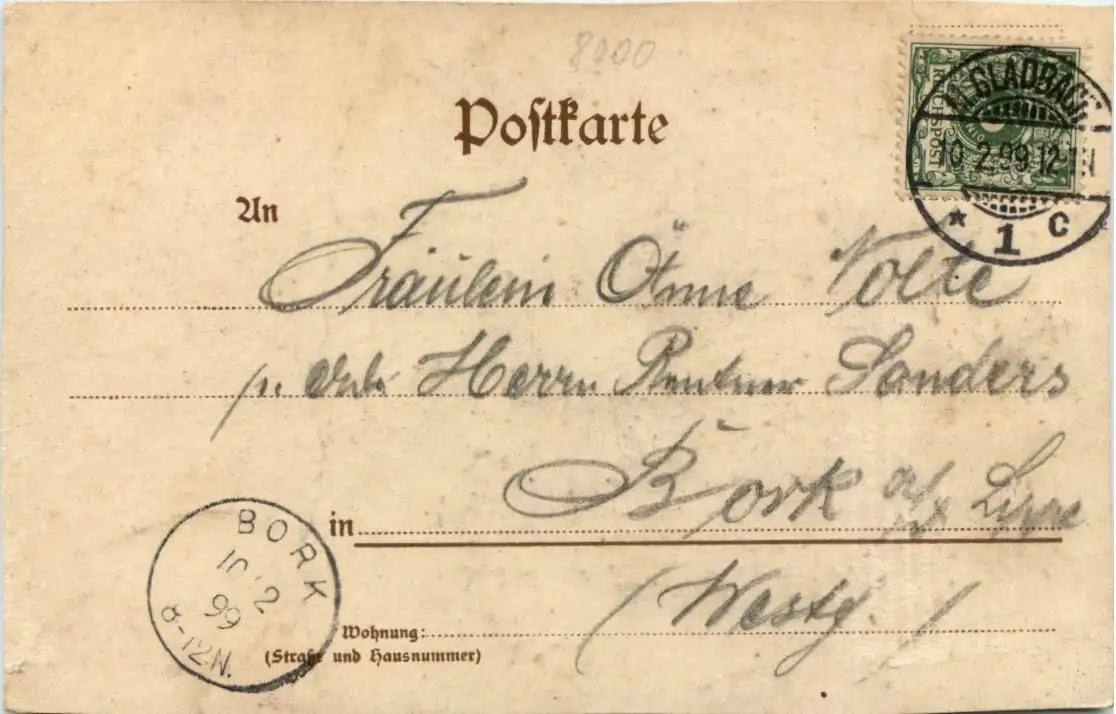 8000
Postkarte
REICHSPOST
M.GLADBACH
10.2.99.12-1N
* 1 c
An
Fräulein Önne Nolte
p. Adr. Herrn Rentner Sanders
in Bork a/d Lippe
(Westf.)
BORK
10 2
99
8-12N.
Wohnung:
(Straße und Hausnummer)